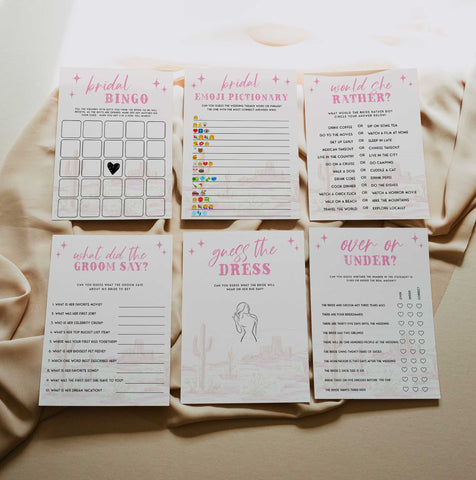 bridal
BINGO
bridal
EMOJI PICTIONARY
CAN YOU GUESS THE WEDDING THEMED WORD OR PHRASE?
THE ONE WITH THE MOST CORRECT ANSWERS WINS
would she
RATHER?
WHAT WOULD THE BRIDE RATHER DO?
CIRCLE YOUR ANSWER BELOW!
DRINK COFFEE OR SIP ON SOME TEA
GO TO THE MOVIES OR WATCH A FILM AT HOME
GET UP EARLY OR SLEEP IN LATE
MEXICAN TAKEOUT OR CHINESE TAKEOUT
LIVE IN THE COUNTRY OR LIVE IN THE CITY
GO ON A CRUISE OR GO CAMPING
WALK A DOG OR CUDDLE A CAT
DRINK COKE OR DRINK PEPSI
COOK DINNER OR DO THE DISHES
WATCH A CHICK FLICK OR WATCH A HORROR
WALK ON A BEACH OR HIKE THE MOUNTAINS
TRAVEL THE WORLD OR EXPLORE LOCALLY
what did the
GROOM SAY?
CAN YOU GUESS WHAT THE GROOM SAID
ABOUT HIS BRIDE TO BE?
1. WHAT IS HER FAVORITE MOVIE?
2. WHAT WAS HER FIRST JOB?
3. WHAT IS HER CELEBRITY CRUSH?
4. WHAT IS HER TOP BUCKET LIST ITEM?
5. WHERE WAS YOUR FIRST KISS TOGETHER?
6. WHAT IS HER BIGGEST PET PEEVE?
7. WHICH ONE WORD BEST DESCRIBES HER?
8. WHAT IS HER FAVORITE SONG?
9. WHAT WAS THE FIRST GIFT SHE GAVE TO YOU?
10. WHAT IS HER DREAM VACATION?
guess the
DRESS
CAN YOU GUESS WHAT THE BRIDE WILL
WEAR ON HER BIG DAY?
over or
UNDER?
CAN YOU GUESS WHETHER THE NUMBER IN THE STATEMENT IS
OVER OR UNDER THE REAL AMOUNT?
OVER
UNDER
THE BRIDE AND GROOM MET THREE YEARS AGO
THERE ARE FOUR BRIDESMAIDS
THERE ARE THIRTY FIVE DAYS UNTIL THE WEDDING
THE BRIDE HAS TWO SIBLINGS
THERE WILL BE ONE HUNDRED PEOPLE AT THE WEDDING
THE BRIDE OWNS TWENTY PAIRS OF SHOES
THE BRIDE'S SHOE SIZE IS SIX